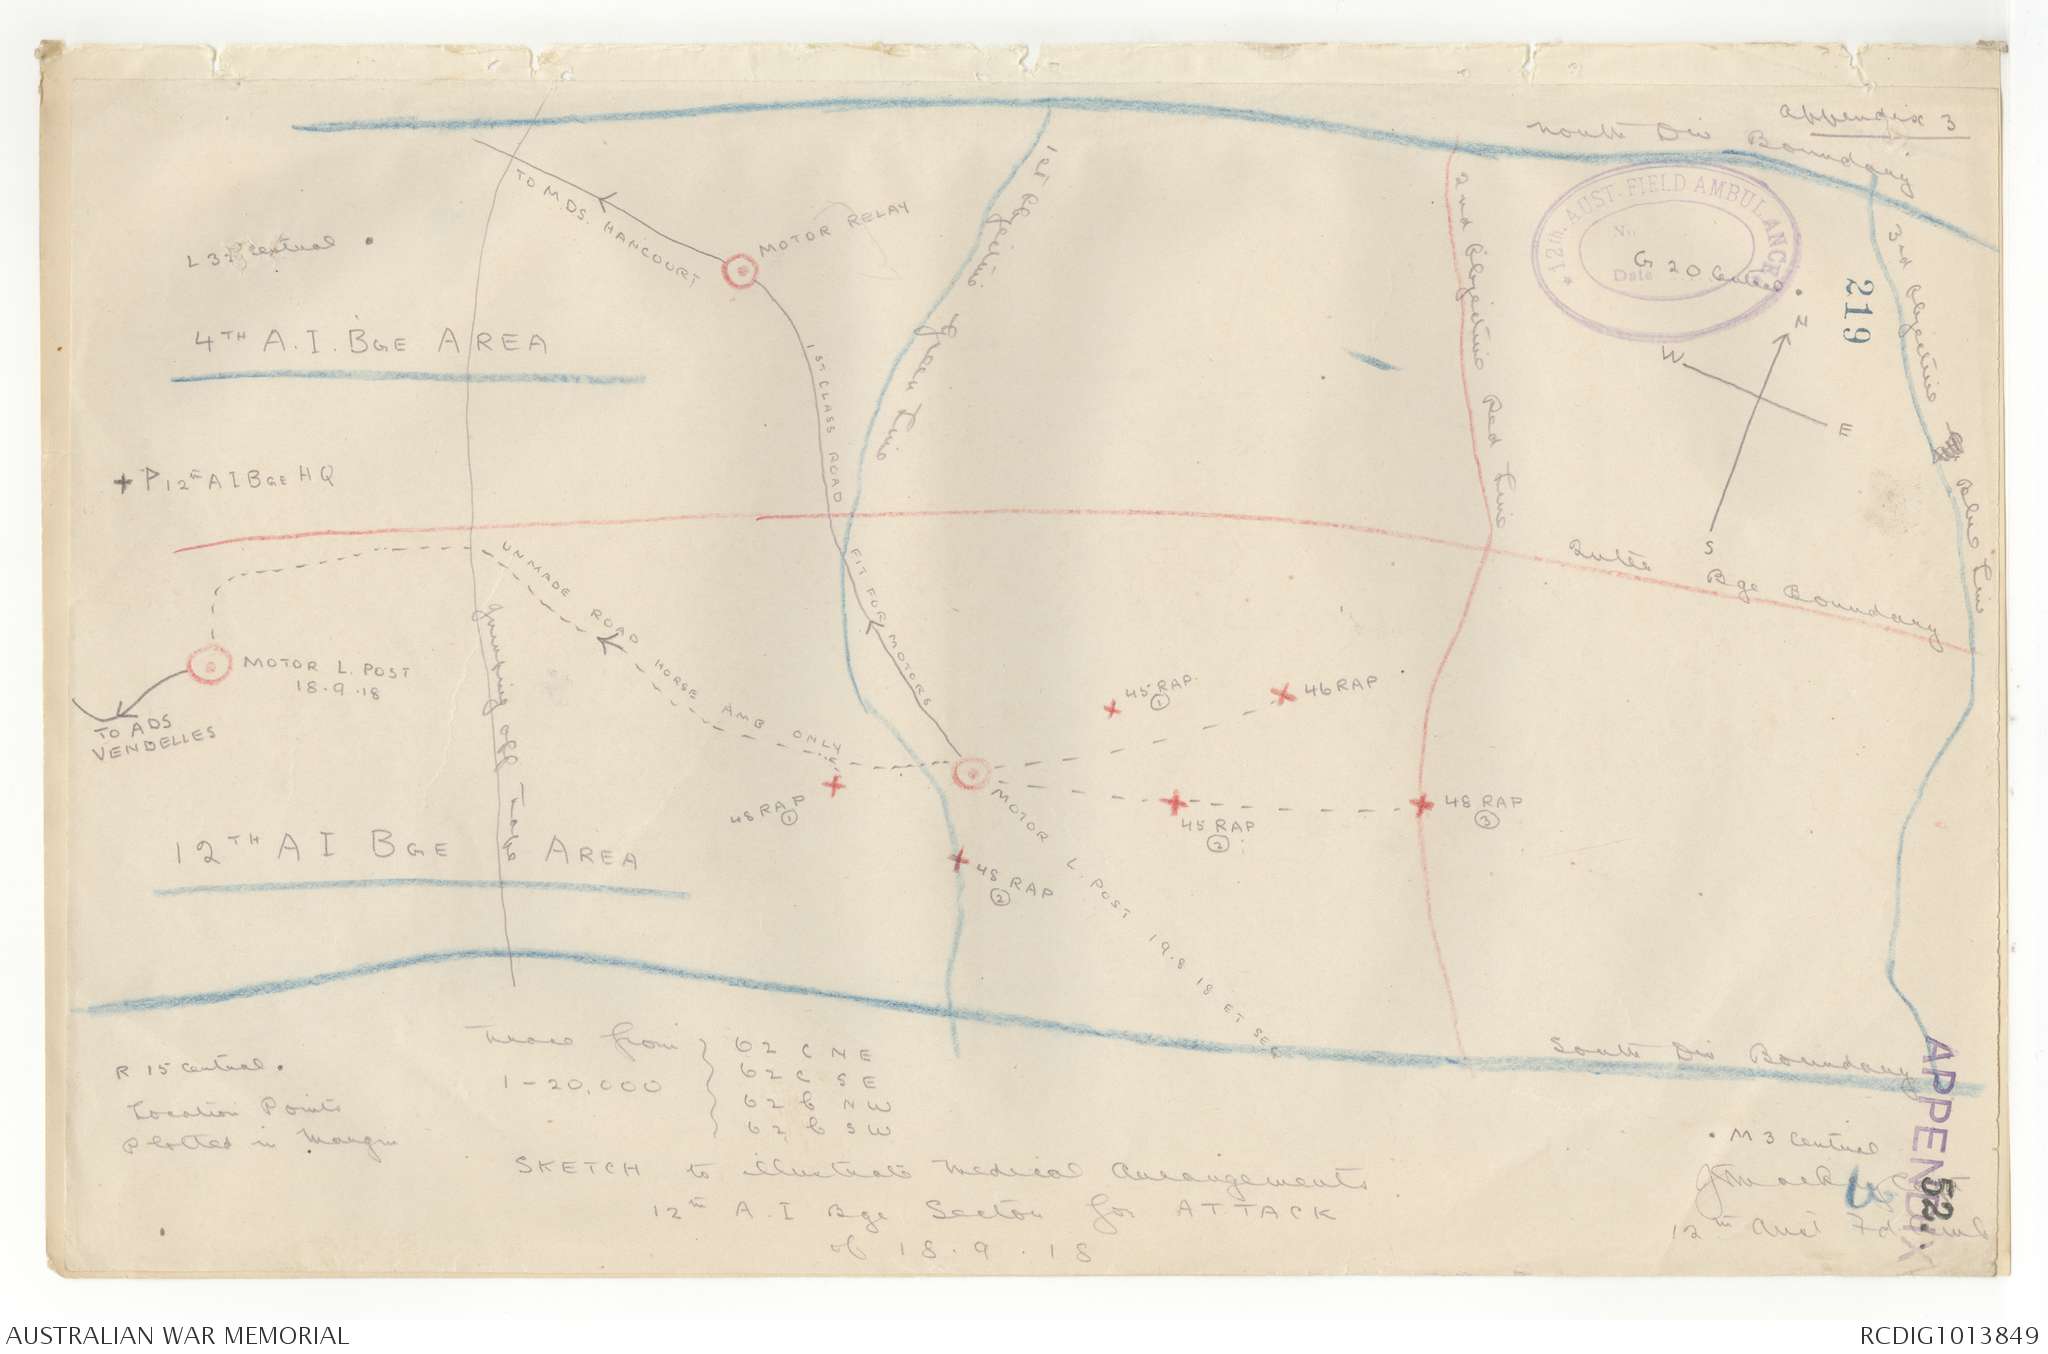 Appendix 3
North Div Boundary
12th. AUST. FIELD AMBULANCE
No
Date
G 20 Central
219
N
W
E
S
TO M.DS. HANCOURT
MOTOR RELAY
1st Objective
Green Line
2nd Objective Red Line
3rd Objective
Blue Line
L 34 Central
4TH A.I. BGE AREA
1ST CLASS ROAD
FIT FOR MOTORS
P 12th A I BGE HQ
Inter Bge Boundary
UNMADE ROAD HORSE AMB ONLY
Jumping off Tape
MOTOR L. POST
18.9.18
TO ADS
VENDELLES
45 RAP
1
46 RAP
48 RAP
1
45 RAP
2
48 RAP
3
48 RAP
2
MOTOR L. POST 19.8 18 ET SEQ
12TH A I BGE AREA
South Div Boundary
R 15 Central
Location Points
Plotted in Margin
Trace from
1-20,000
62 C NE
62 C SE
62 b NW
62 b SW
M 3 Central
SKETCH to illustrate Medical Arrangements
12th A.I Bge Sector for ATTACK
of 18.9.18
12th Aust Fd Amb
APPENDIX
52.
AUSTRALIAN WAR MEMORIAL
RCDIG1013849